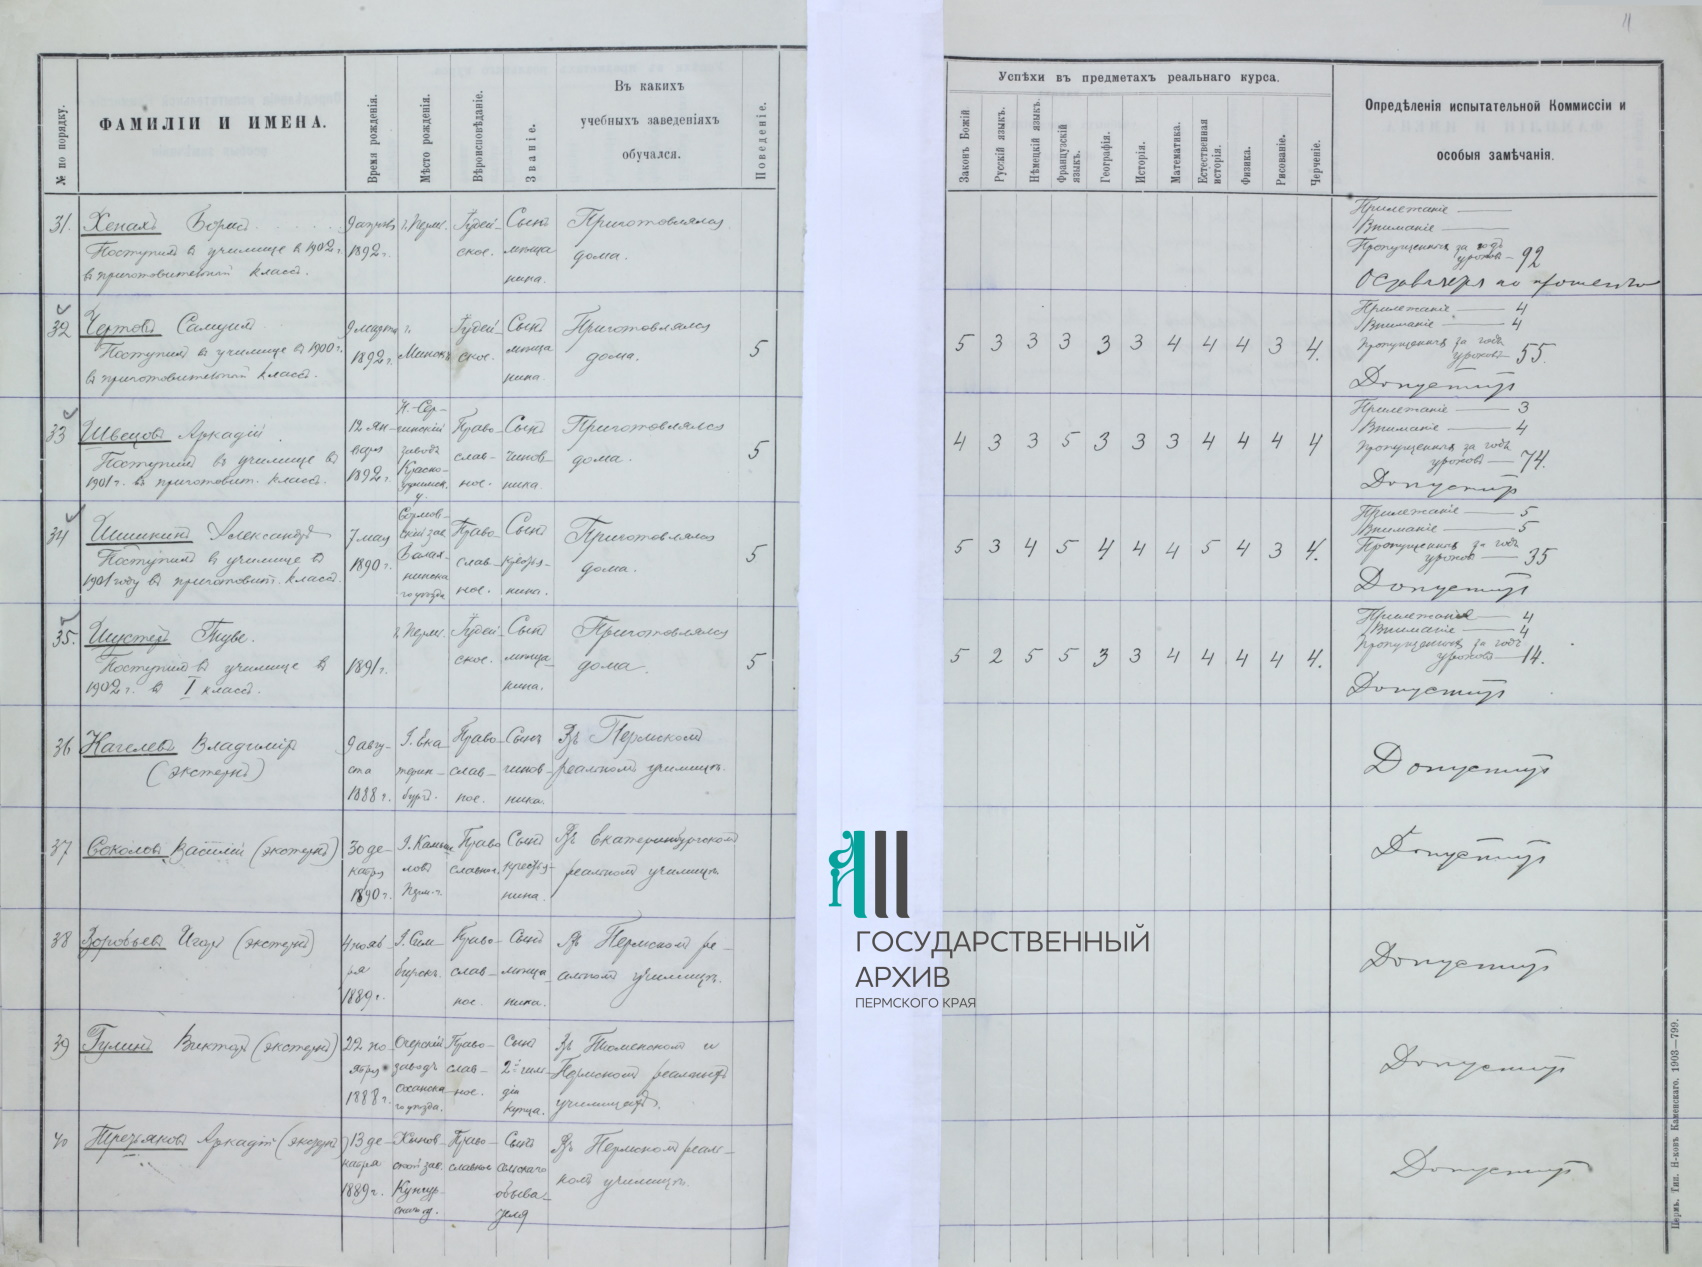 11
№ по порядку.
ФАМИЛІИ И ИМЕНА.
Время рожденія.
Мѣсто рожденія.
Вѣроисповѣданіе.
Званіе.
Въ какихъ
учебныхъ заведеніяхъ
обучался.
Поведеніе.
Успѣхи въ предметахъ реальнаго курса.
Законъ Божій
Русскій языкъ.
Нѣмецкій языкъ.
Французскій языкъ.
Географія.
Исторія.
Математика.
Естественная исторія.
Физика.
Рисованіе.
Черченіе.
Опредѣленія испытательной Коммиссіи и
особыя замѣчанія.
31. Борисъ
Поступилъ въ училище въ 1902 г.
въ приготовительный классъ.
1892 г.
г. Пермь.
Іудейское.
Сынъ мѣщанина.
Приготовлялся
дома.
Прилежаніе —
Вниманіе —
Пропущенныхъ за годъ
уроковъ — 92
32 Чертовъ Самуилъ
Поступилъ въ училище въ 1900 г.
въ приготовительный классъ.
9 марта
1892 г.
г. Минскъ
Іудейское.
Сынъ мѣщанина
Приготовлялся
дома.
5
5 3 3 3 3 3 4 4 4 3 4.
Прилежаніе — 4
Вниманіе — 4
Пропущенныхъ за годъ
уроковъ 55.
Допустить
33 Швецовъ Аркадій
Поступилъ въ училище въ
1901 г. въ приготовит. классъ.
12 января
1892 г.
Православное.
Сынъ чиновника.
Приготовлялся
дома.
5
4 3 3 5 3 3 3 4 4 4 4
Прилежаніе — 3
Вниманіе — 4
Пропущенныхъ за годъ
уроковъ — 74.
Допустить
34 Шишкинъ Александръ
Поступилъ въ училище въ
1901 году въ приготовит. классъ.
7 мая
1890 г.
Православное.
Сынъ крестьянина.
Приготовлялся
дома.
5
5 3 4 5 4 4 4 5 4 3 4.
Прилежаніе — 5
Вниманіе — 5
Пропущенныхъ за годъ
уроковъ — 35
Допустить
35. Шустеръ
Поступилъ въ училище въ
1902 г. въ I классъ.
1891 г.
г. Пермь.
Іудейское.
Сынъ мѣщанина.
Приготовлялся
дома.
5
5 2 5 5 3 3 4 4 4 4 4.
Прилежаніе — 4
Вниманіе — 4
Пропущенныхъ за годъ
уроковъ — 14.
Допустить
36 Нагелевъ Владиміръ
(экстернъ)
9 августа
1888 г.
Г. Екатеринбургъ.
Православное.
Сынъ чиновника.
Въ Пермскомъ
реальномъ училищѣ.
Допустить
37 Соколовъ Василій (экстернъ)
30 декабря
1890 г.
Православн.
Сынъ крестьянина.
Въ Екатеринбургскомъ
реальномъ училищѣ.
Допустить
38 Воробьевъ Игорь (экстернъ)
4 ноября
1889 г.
Г. Симбирскъ.
Православное.
Сынъ мѣщанина.
Въ Пермскомъ реальномъ училищѣ.
Допустить
39 Гулинъ Викторъ (экстернъ)
22 ноября
1888 г.
Очерскій заводъ Оханскаго уѣзда.
Православное.
Сынъ 2-й гильдіи купца.
Въ Тюменскомъ и
Пермскомъ реальныхъ
училищахъ.
Допустить
40 Третьяковъ Аркадій (экстернъ)
13 декабря
1889 г.
Православное
Сынъ сельскаго обывателя
Въ Пермскомъ реальномъ училищѣ.
Допустить
ГОСУДАРСТВЕННЫЙ
АРХИВ
ПЕРМСКОГО КРАЯ
Пермь. Тип. Н-ковъ Каменскаго. 1903—799.